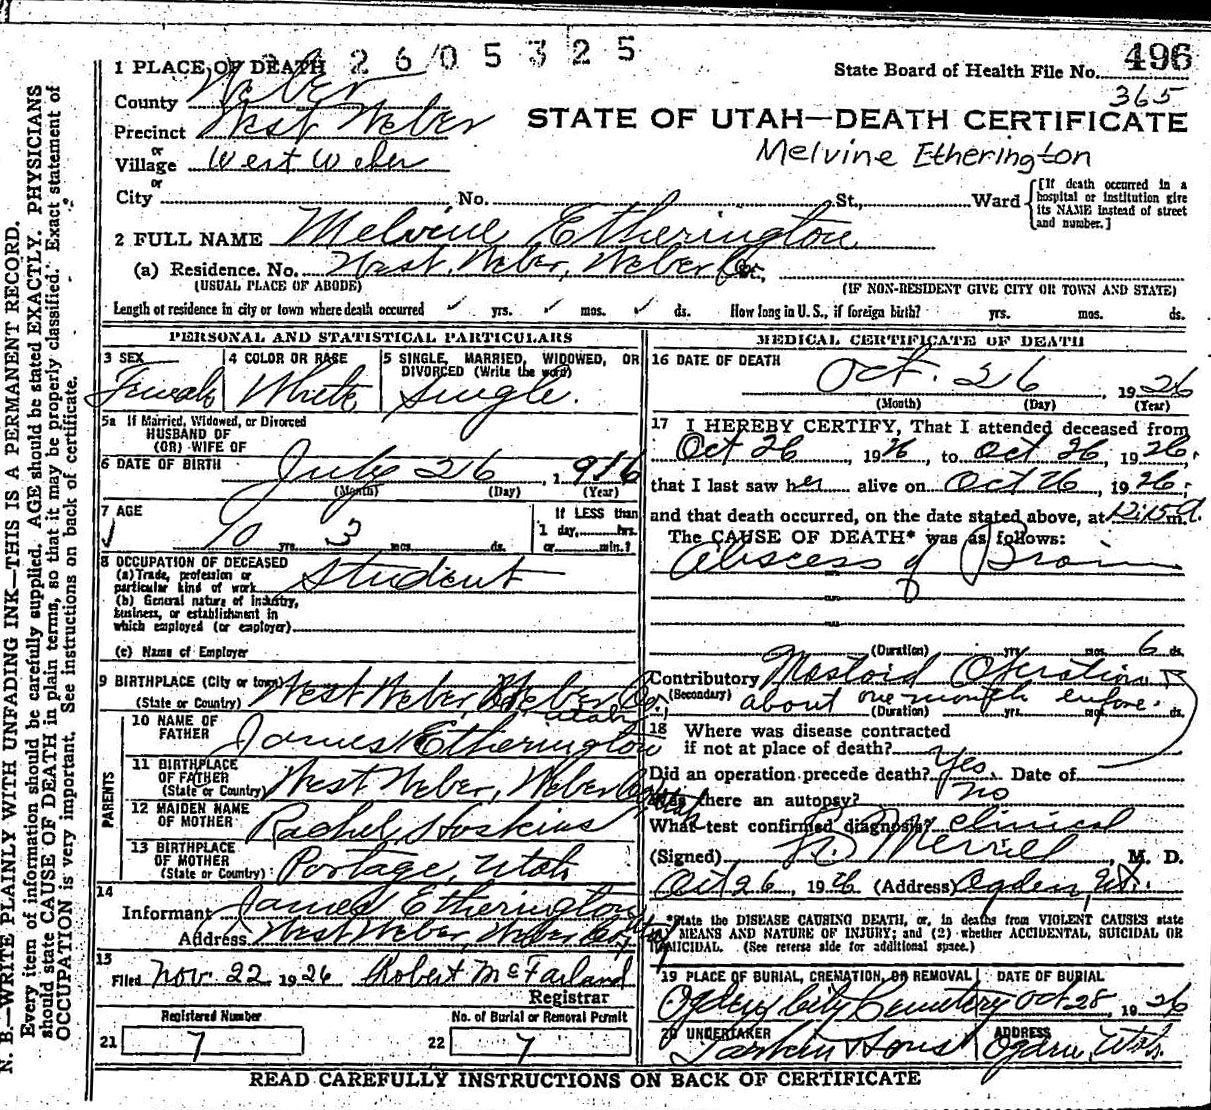 2605325
496
State Board of Health File No.
365
STATE OF UTAH—DEATH CERTIFICATE
Melvine Etherington
1 PLACE OF DEATH
County Weber
Precinct West Weber
or
Village West Weber
or
City No. St., Ward
[If death occurred in a hospital or institution give its NAME instead of street and number.]
2 FULL NAME Melvine Etherington
(a) Residence. No. West Weber, Weber Co. St.,
(USUAL PLACE OF ABODE) (IF NON-RESIDENT GIVE CITY OR TOWN AND STATE)
Length of residence in city or town where death occurred ✓ yrs. ✓ mos. ✓ ds. How long in U. S., if foreign birth? yrs. mos. ds.
PERSONAL AND STATISTICAL PARTICULARS
3 SEX
Female
4 COLOR OR RACE
White
5 SINGLE, MARRIED, WIDOWED, OR
DIVORCED (Write the word)
Single.
5a If Married, Widowed, or Divorced
HUSBAND OF
(OR) WIFE OF
6 DATE OF BIRTH July 26, 1916
(Month) (Day) (Year)
7 AGE
10 yrs. 3 mos. ds.
If LESS than
1 day, hrs.
or min.?
8 OCCUPATION OF DECEASED
(a) Trade, profession or
particular kind of work Student
(b) General nature of industry,
business, or establishment in
which employed (or employer)
(c) Name of Employer
9 BIRTHPLACE (City or town) West Weber, Weber Co.,
(State or Country) Utah
PARENTS
10 NAME OF
FATHER James Etherington
11 BIRTHPLACE
OF FATHER
(State or Country) West Weber, Weber Co Utah
12 MAIDEN NAME
OF MOTHER Rachel Hoskins
13 BIRTHPLACE
OF MOTHER
(State or Country) Portage, Utah
14
Informant James Etherington
Address West Weber, Weber Co
15
Filed Nov. 22 1926 Robert McFarland
Registrar
Registered Number
21 7
No. of Burial or Removal Permit
22 7
MEDICAL CERTIFICATE OF DEATH
16 DATE OF DEATH
Oct. 26, 1926
(Month) (Day) (Year)
17 I HEREBY CERTIFY, That I attended deceased from
Oct 26, 1926, to Oct 26, 1926,
that I last saw her alive on Oct 26, 1926;
and that death occurred, on the date stated above, at 12:15 a. m.
The CAUSE OF DEATH* was as follows:
Abscess of Brain
(Duration) yrs. mos. 6 ds.
Contributory Mastoid Operation
(Secondary) about one month before.
(Duration) yrs. mos. ds.
18 Where was disease contracted
if not at place of death?
Did an operation precede death? Yes. Date of
Was there an autopsy? no
What test confirmed diagnosis? Clinical
(Signed) Merrill, M. D.
Oct 26, 1926 (Address) Ogden, Ut.
*State the DISEASE CAUSING DEATH, or, in deaths from VIOLENT CAUSES state
MEANS AND NATURE OF INJURY; and (2) whether ACCIDENTAL, SUICIDAL OR
HOMICIDAL. (See reverse side for additional space.)
19 PLACE OF BURIAL, CREMATION, OR REMOVAL
Ogden City Cemetery
DATE OF BURIAL
Oct 28, 1926
20 UNDERTAKER
Larkin & Sons
ADDRESS
Ogden, Utah.
READ CAREFULLY INSTRUCTIONS ON BACK OF CERTIFICATE
N. B.—WRITE PLAINLY WITH UNFADING INK—THIS IS A PERMANENT RECORD.
Every item of information should be carefully supplied. AGE should be stated EXACTLY. PHYSICIANS
should state CAUSE OF DEATH in plain terms, so that it may be properly classified. Exact statement of
OCCUPATION is very important. See instructions on back of certificate.